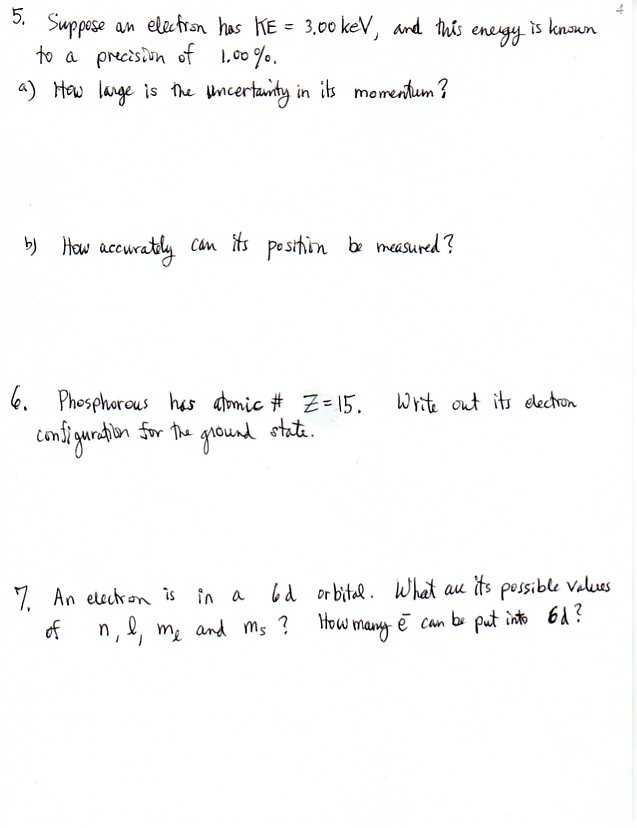 4
5. Suppose an electron has KE = 3.00 keV, and this energy is known
to a precision of 1.00%.
a) How large is the uncertainty in its momentum?
b) How accurately can its position be measured?
6. Phosphorous has atomic # Z = 15. Write out its electron
configuration for the ground state.
7. An electron is in a 6d orbital. What are its possible values
of n, l, mℓ and ms? How many ē can be put into 6d?